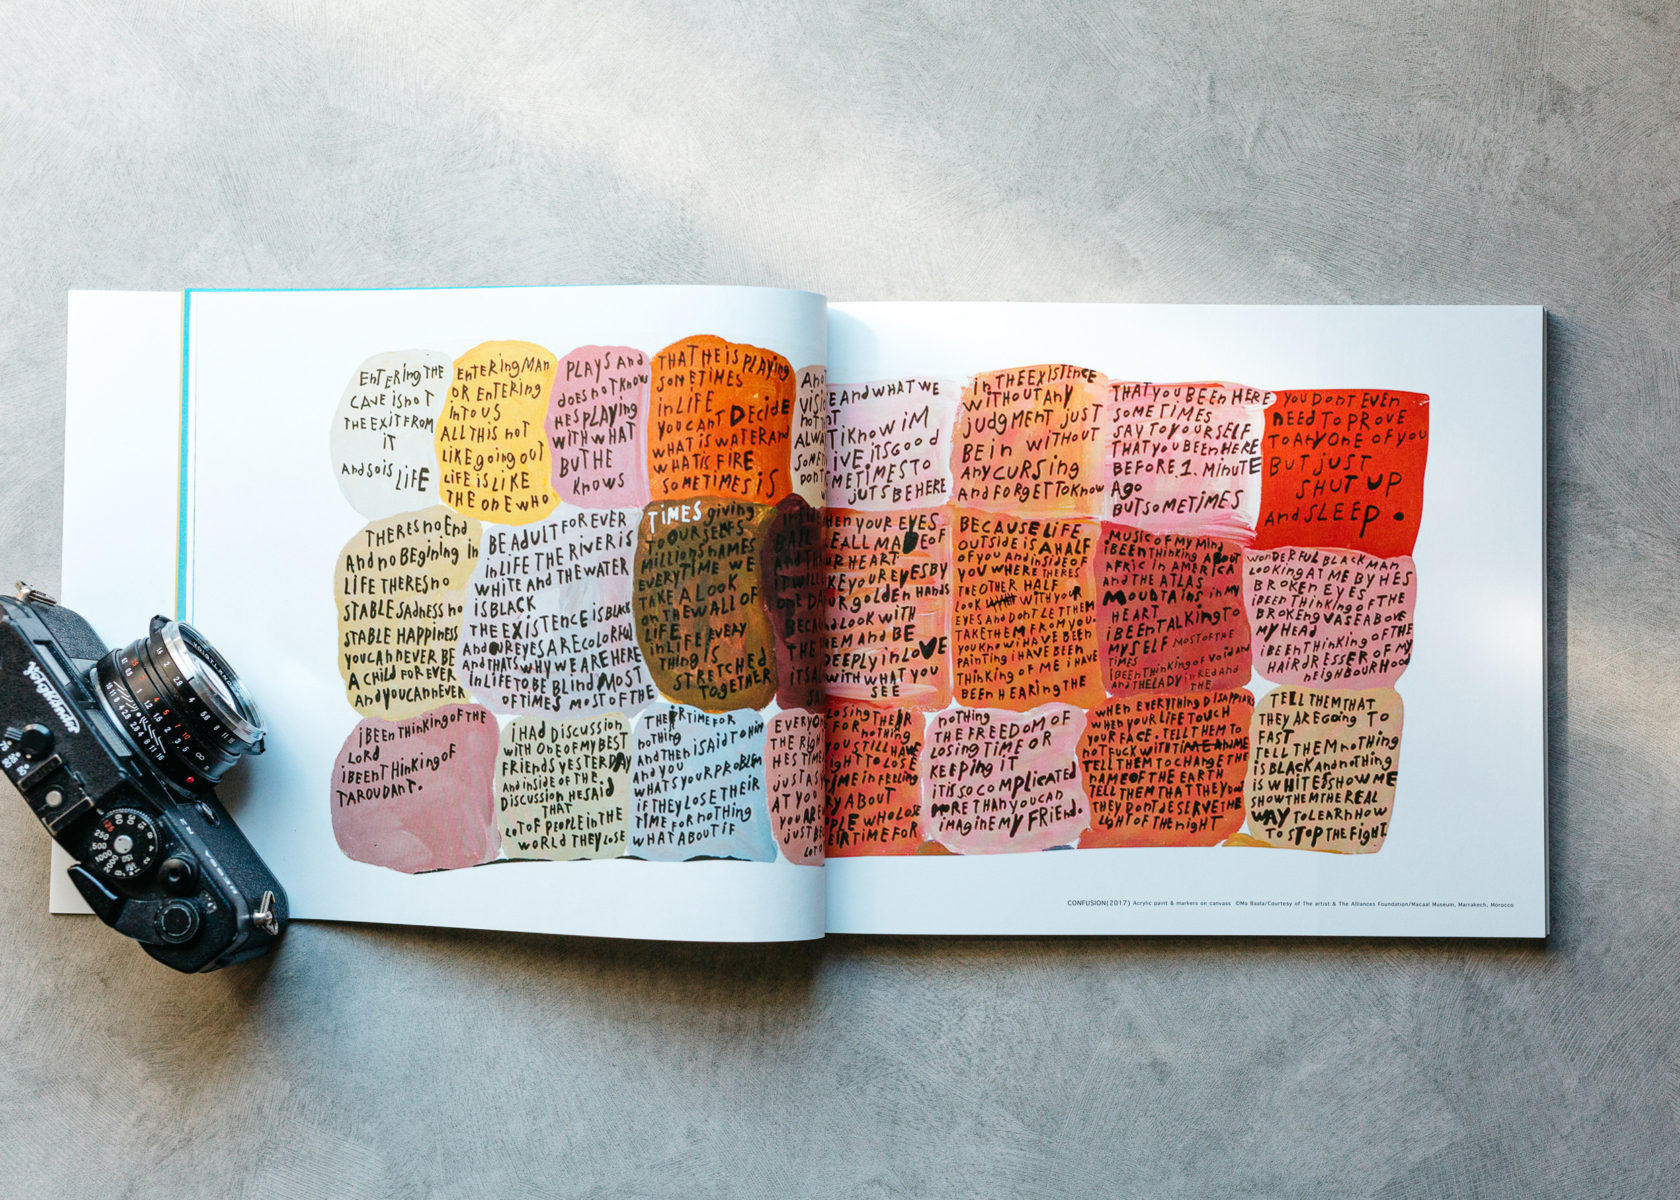 EnTERing THE
CAVE iS noT
THE EXiT FROM
iT
And SO iS LiFE
EnTERing MAn
OR EnTERing
inTO US
ALL THiS noT
LiKE going OUT
LiFE iS LiKE
THE OnE WHO
PLAYS And
does noT KnoW
HES PLAYing
WiTH WHAT
BUT HE
KnoWS
THAT HE iS PLAYing
SOMETiMES
in LiFE
YOU CAnT DeCidE
WHAT iS WATER And
WHAT iS FiRE
SOMETiMES iS
E And WHAT WE
i KnoW iM
iTS Good
METiMES TO
JUTS BE HERE
in THE EXiSTEnCE
WiTHOUT Any
JUdgMEnT JUST
BE in WiTHOUT
Any CURSing
And FORgET TO KnoW
THAT YOU BEEn HERE
SOME TiMES
SAY TO YOURSELF
THAT YOU BEEn HERE
BEFORE 1. MinUTE
Ago
BUT SOMETiMES
YOU DOnT EVEn
nEEd TO PROVE
TO AnY OnE OF YOU
BUT JUST
SHUT UP
And SLEEP.
THERES no End
And no BEgining in
LiFE THERES no
STABLE SAdnESS no
STABLE HAPPinESS
YOU CAn nEVER BE
A CHiLd FOR EVER
And YOU CAn nEVER
BE AdULT FOR EVER
in LiFE THE RiVER iS
WHiTE And THE WATER
iS BLACK
THE EXiSTEnCE iS BLACK
And OUR EYES ARE COLORFUL
And THATS WHY WE ARE HERE
in LiFE TO BE BLind MOST
OF TiMES MOST OF THE
TiMES giving
TO OURSELFS
MiLLiOnS nAMES
EVERY TiME WE
TAKE A LOOK
On THE WALL OF
LiFE
in LiFE EVERY
THing iS
STRETCHEd
TOgETHER
HEn YOUR EYES
E ALL MADE OF
UR HEART
KE YOUR EYES BY
UR gOLdEn HAndS
nd LOOK WiTH
EM And BE
EEPLY in LOVE
WiTH WHAT YOU
SEE
BECAUSE LiFE
OUTSidE iS A HALF
OF YOU And inSidE OF
YOU WHERE THERES
THE OTHER HALF
LOOK WiTH YOUR
EYES And DOnT LET THEM
TAKE THEM FROM YOU.
YOU KnoW i HAVE BEEn
PAinTing i HAVE BEEn
THinKing OF ME i HAVE
BEEn HEARing THE
MUSiC OF MY Mind
i BEEn THinKing ABOUT
AFRiC in AMERiCA
And THE ATLAS
MOUnTAinS in MY
HEART
i BEEn TALKing TO
MYSELF MOST OF THE
TiMES
i BEEn THinKing OF VOid And
And THE LADY in REd And
THE
WOnDERFUL BLACK MAn
LOOKing AT ME BY HES
BROKEn EYES
i BEEn THinKing OF THE
BROKEn VASE ABOVE
MY HEAd
i BEEn THinKing OF THE
HAiRDRESSER OF MY
nEigHBOURHOOd
i BEEn THinKing OF THE
LORd
i BEEn THinKing OF
TAROUdAnT.
i HAd DiSCUSSiOn
WiTH OnE OF MY BEST
FRiEndS YESTERDAY
And inSidE OF THE.
DiSCUSSiOn HE SAid
THAT
LOT OF PEOPLE in THE
WORLd THEY LOSE
THEiR TiME FOR
noTHing
And THEn i SAid TO HiM
And YOU
WHATS YOUR PROBLEM
iF THEY LOSE THEiR
TiME FOR noTHing
WHAT ABOUT iF
LOSing THEiR
OR noTHing
YOU STiLL HAVE
igHT TO LOSE
TiME in FEELing
RY ABOUT
PLE WHO LOSE
EiR TiME FOR
noTHing
THE FREEdOM OF
LOSing TiME OR
KEEPing iT
iT iS SO COMPLiCATEd
MORE THAn YOU CAn
iMAginE MY FRiEnd.
WHEn EVERYTHing DiSAPPEARS
WHEn YOUR LiFE TOUCH
YOUR FACE. TELL THEM TO
noT FUCK WiTH
TELL THEM TO CHAngE THE
nAME OF THE EARTH
TELL THEM THAT THEY DOnT
THEY DOnT dESERVE THE
LigHT OF THE nigHT
TELL THEM THAT
THEY ARE going TO
FAST
TELL THEM noTHing
iS BLACK And noTHing
iS WHiTE SHOW ME
SHOW THEM THE REAL
WAY TO LEARn HOW
TO STOP THE FigHT.
CONFUSION(2017) Acrylic paint & markers on canvass ©Mo Baala/Courtesy of The artist & The Alliances Foundation/Macaal Museum, Marrakech, Morocco
Voigtländer